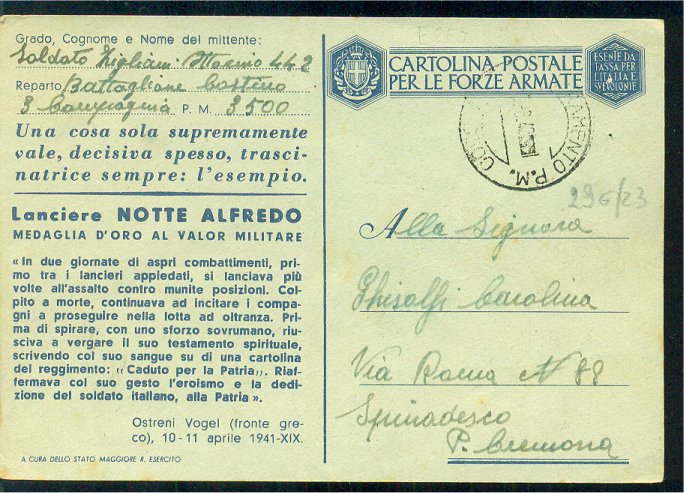 Grado, Cognome e Nome del mittente:
Soldato Zigliani Marino 442
Reparto Battaglione Costiero
3 Compagnia P. M. 3500
Una cosa sola supremamente
vale, decisiva spesso, trasci-
natrice sempre: l'esempio.
Lanciere NOTTE ALFREDO
MEDAGLIA D'ORO AL VALOR MILITARE
« In due giornate di aspri combattimenti, pri-
mo tra i lancieri appiedati, si lanciava più
volte all'assalto contro munite posizioni. Col-
pito a morte, continuava ad incitare i compa-
gni a proseguire nella lotta ad oltranza. Pri-
ma di spirare, con uno sforzo sovrumano, riu-
sciva a vergare il suo testamento spirituale,
scrivendo col suo sangue su di una cartolina
del reggimento: "Caduto per la Patria". Riaf-
fermava col suo gesto l'eroismo e la dedi-
zione del soldato italiano, alla Patria ».
Ostreni Vogel (fronte gre-
co), 10-11 aprile 1941-XIX.
A CURA DELLO STATO MAGGIORE R. ESERCITO
CARTOLINA POSTALE
PER LE FORZE ARMATE
ESENTE DA
TASSA PER
L'ITALIA E
SVE COLONIE
P.M.
296/23
Alla Signora
Ghisolfi Carolina
Via Roma N 88
Spinadesco
P. Cremona